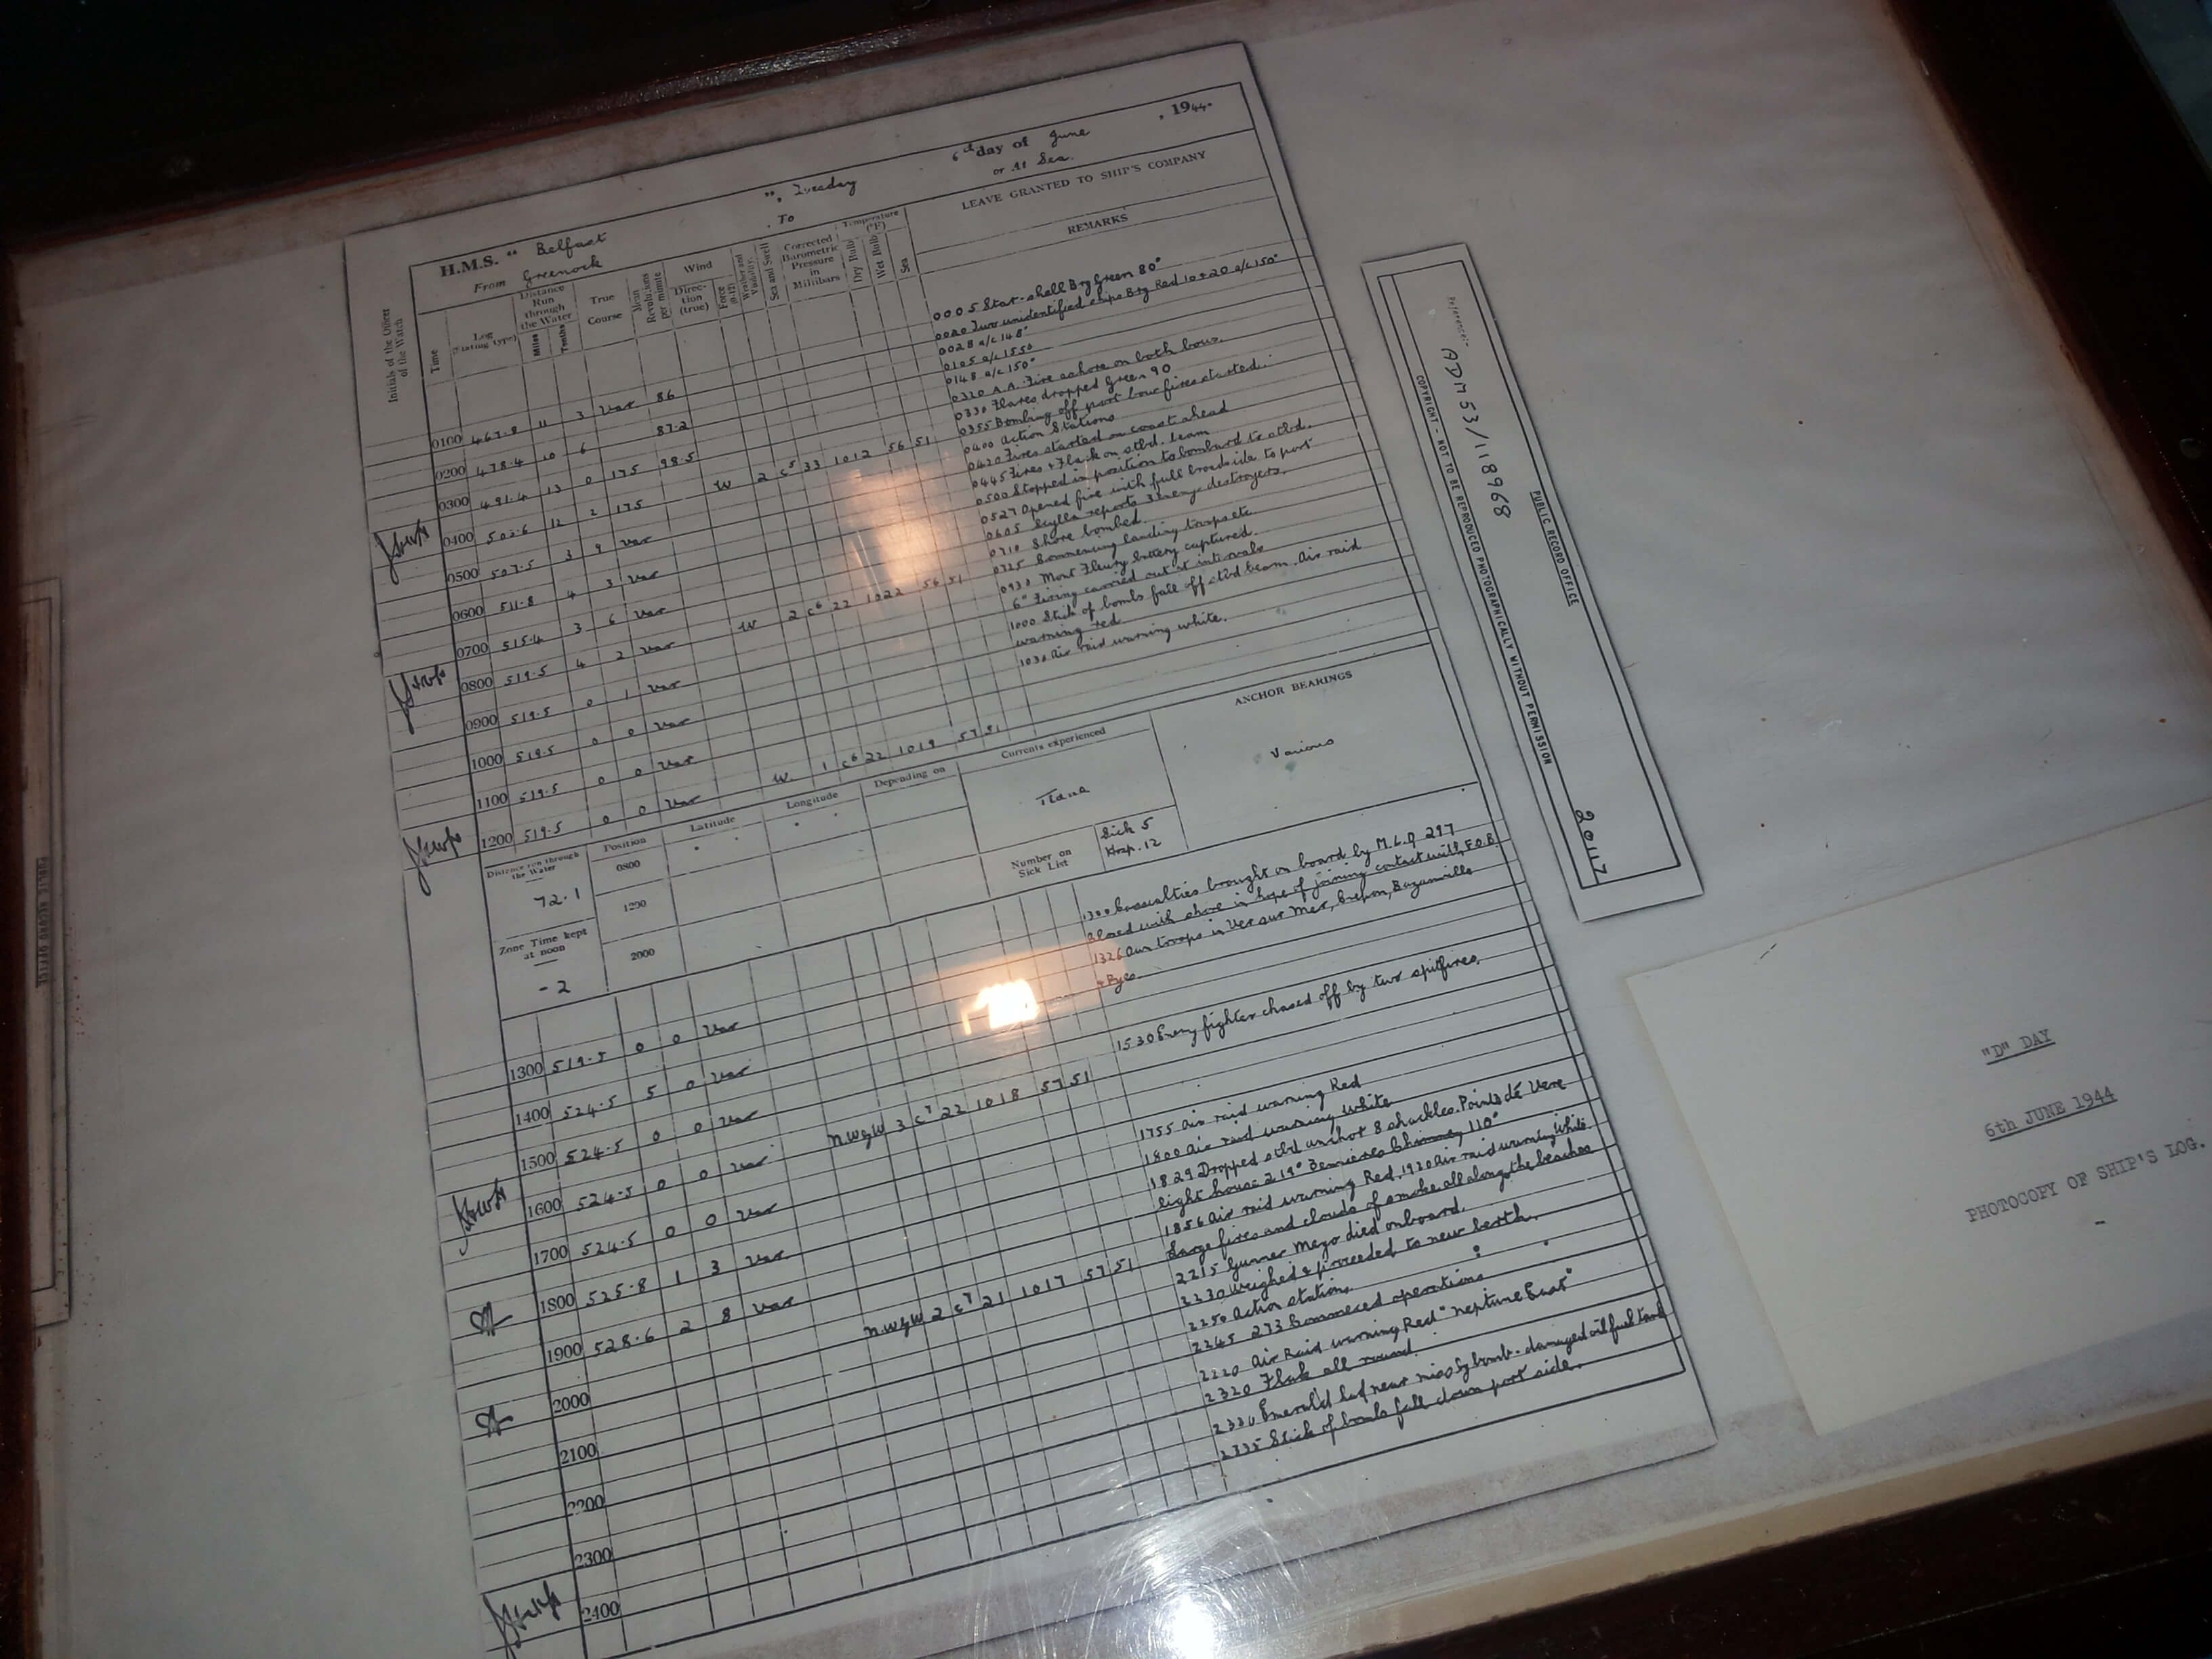 H.M.S. " Belfast ", Tuesday 6th day of June, 1944.
From Greenock To or At Sea.
Initials of the Officer of the Watch
Time
Log
Distance Run through the Water
Miles
Tenths
True Course
Mean Revolutions per minute
Wind
Direction (true)
Force (0-12)
Weather and Visibility
Sea and Swell
Corrected Barometric Pressure in Millibars
Temperature (°F)
Dry Bulb
Wet Bulb
Sea
LEAVE GRANTED TO SHIP'S COMPANY
REMARKS
0005 Star-shell Brg Green 80°
0020 Two unidentified ships Brg Red 10+20 a/c 150°
0028 a/c 148°
0105 a/c 155°
0148 a/c 150°
0320 A.A. Fire ashore on both bows.
0330 Flares dropped Green 90
0355 Bombing off port bow fires started.
0400 Action Stations
0420 Fires started on coast ahead
0445 Fires + Flak on stbd. beam
0500 Stopped in position to bombard to stbd.
0527 Opened fire with full broadside to port
0605 Scylla reports 3 enemy destroyers.
0710 Shore bombed.
0725 Commencing landing troops etc
0930 Mont Fleury battery captured.
6" Firing carried out at intervals
1000 Stick of bombs fall off stbd beam. Air raid
warning red
1030 Air raid warning white.
0100 467.8 11 3 Var 86
0200 478.4 10 6 87.2
0300 491.4 13 0 175 98.5
0400 503.6 12 2 175 W 2 c5 33 1012 56 51
0500 507.5 3 9 Var
0600 511.8 4 3 Var
0700 515.4 3 6 Var
0800 519.5 4 2 Var W 2 c6 22 1022 56 51
0900 519.5 0 1 Var
1000 519.5 0 0 Var
1100 519.5 0 0 Var
1200 519.5 0 0 Var W 1 c6 22 1019 57 51
Distance run through the Water
72.1
Zone Time kept at noon
-2
Position
Latitude
Longitude
Depending on
Currents experienced
ANCHOR BEARINGS
0800
1200
2000
Various
Number on Sick List
Sick 5
Hosp. 12
1300 519.5 0 0 Var
1400 524.5 5 0 Var
1500 524.5 0 0 Var
1600 524.5 0 0 Var N.W by W 3 c7 22 1018 57 51
1700 524.5 0 0 Var
1800 525.8 1 3 Var
1900 528.6 2 8 Var
2000 N.W by W 2 c7 21 1017 57 51
2100
2200
2300
2400
1300 Casualties brought on board by M.L.Q 297
Closed with shore in hope of joining contact with F.O.B.
1326 Our troops in Ver sur Mer, Crepon, Bazenville
+ Ryes
1530 Enemy fighter chased off by two spitfires.
1755 Air raid warning Red
1800 Air raid warning White
1829 Dropped stbd anchor 8 shackles. Point de Vere
light house 219° Bernieres Chimney 110°
1856 Air raid warning Red, 1920 Air raid warning White.
Large fires and clouds of smoke all along the beaches
2215 Gunner Mayo died onboard.
2230 Weighed & proceeded to new berth.
2250 Action stations.
2245 273 Commenced operations
2220 Air Raid warning Red "Neptune East"
2320 Flak all round.
2330 Emerald had near miss by bomb - damaged oil fuel tank
2335 Stick of bombs fall down port side.
PUBLIC RECORD OFFICE
Reference:-
ADM 53/118968
20117
COPYRIGHT - NOT TO BE REPRODUCED PHOTOGRAPHICALLY WITHOUT PERMISSION
"D" DAY
6th JUNE 1944
PHOTOCOPY OF SHIP'S LOG.
-